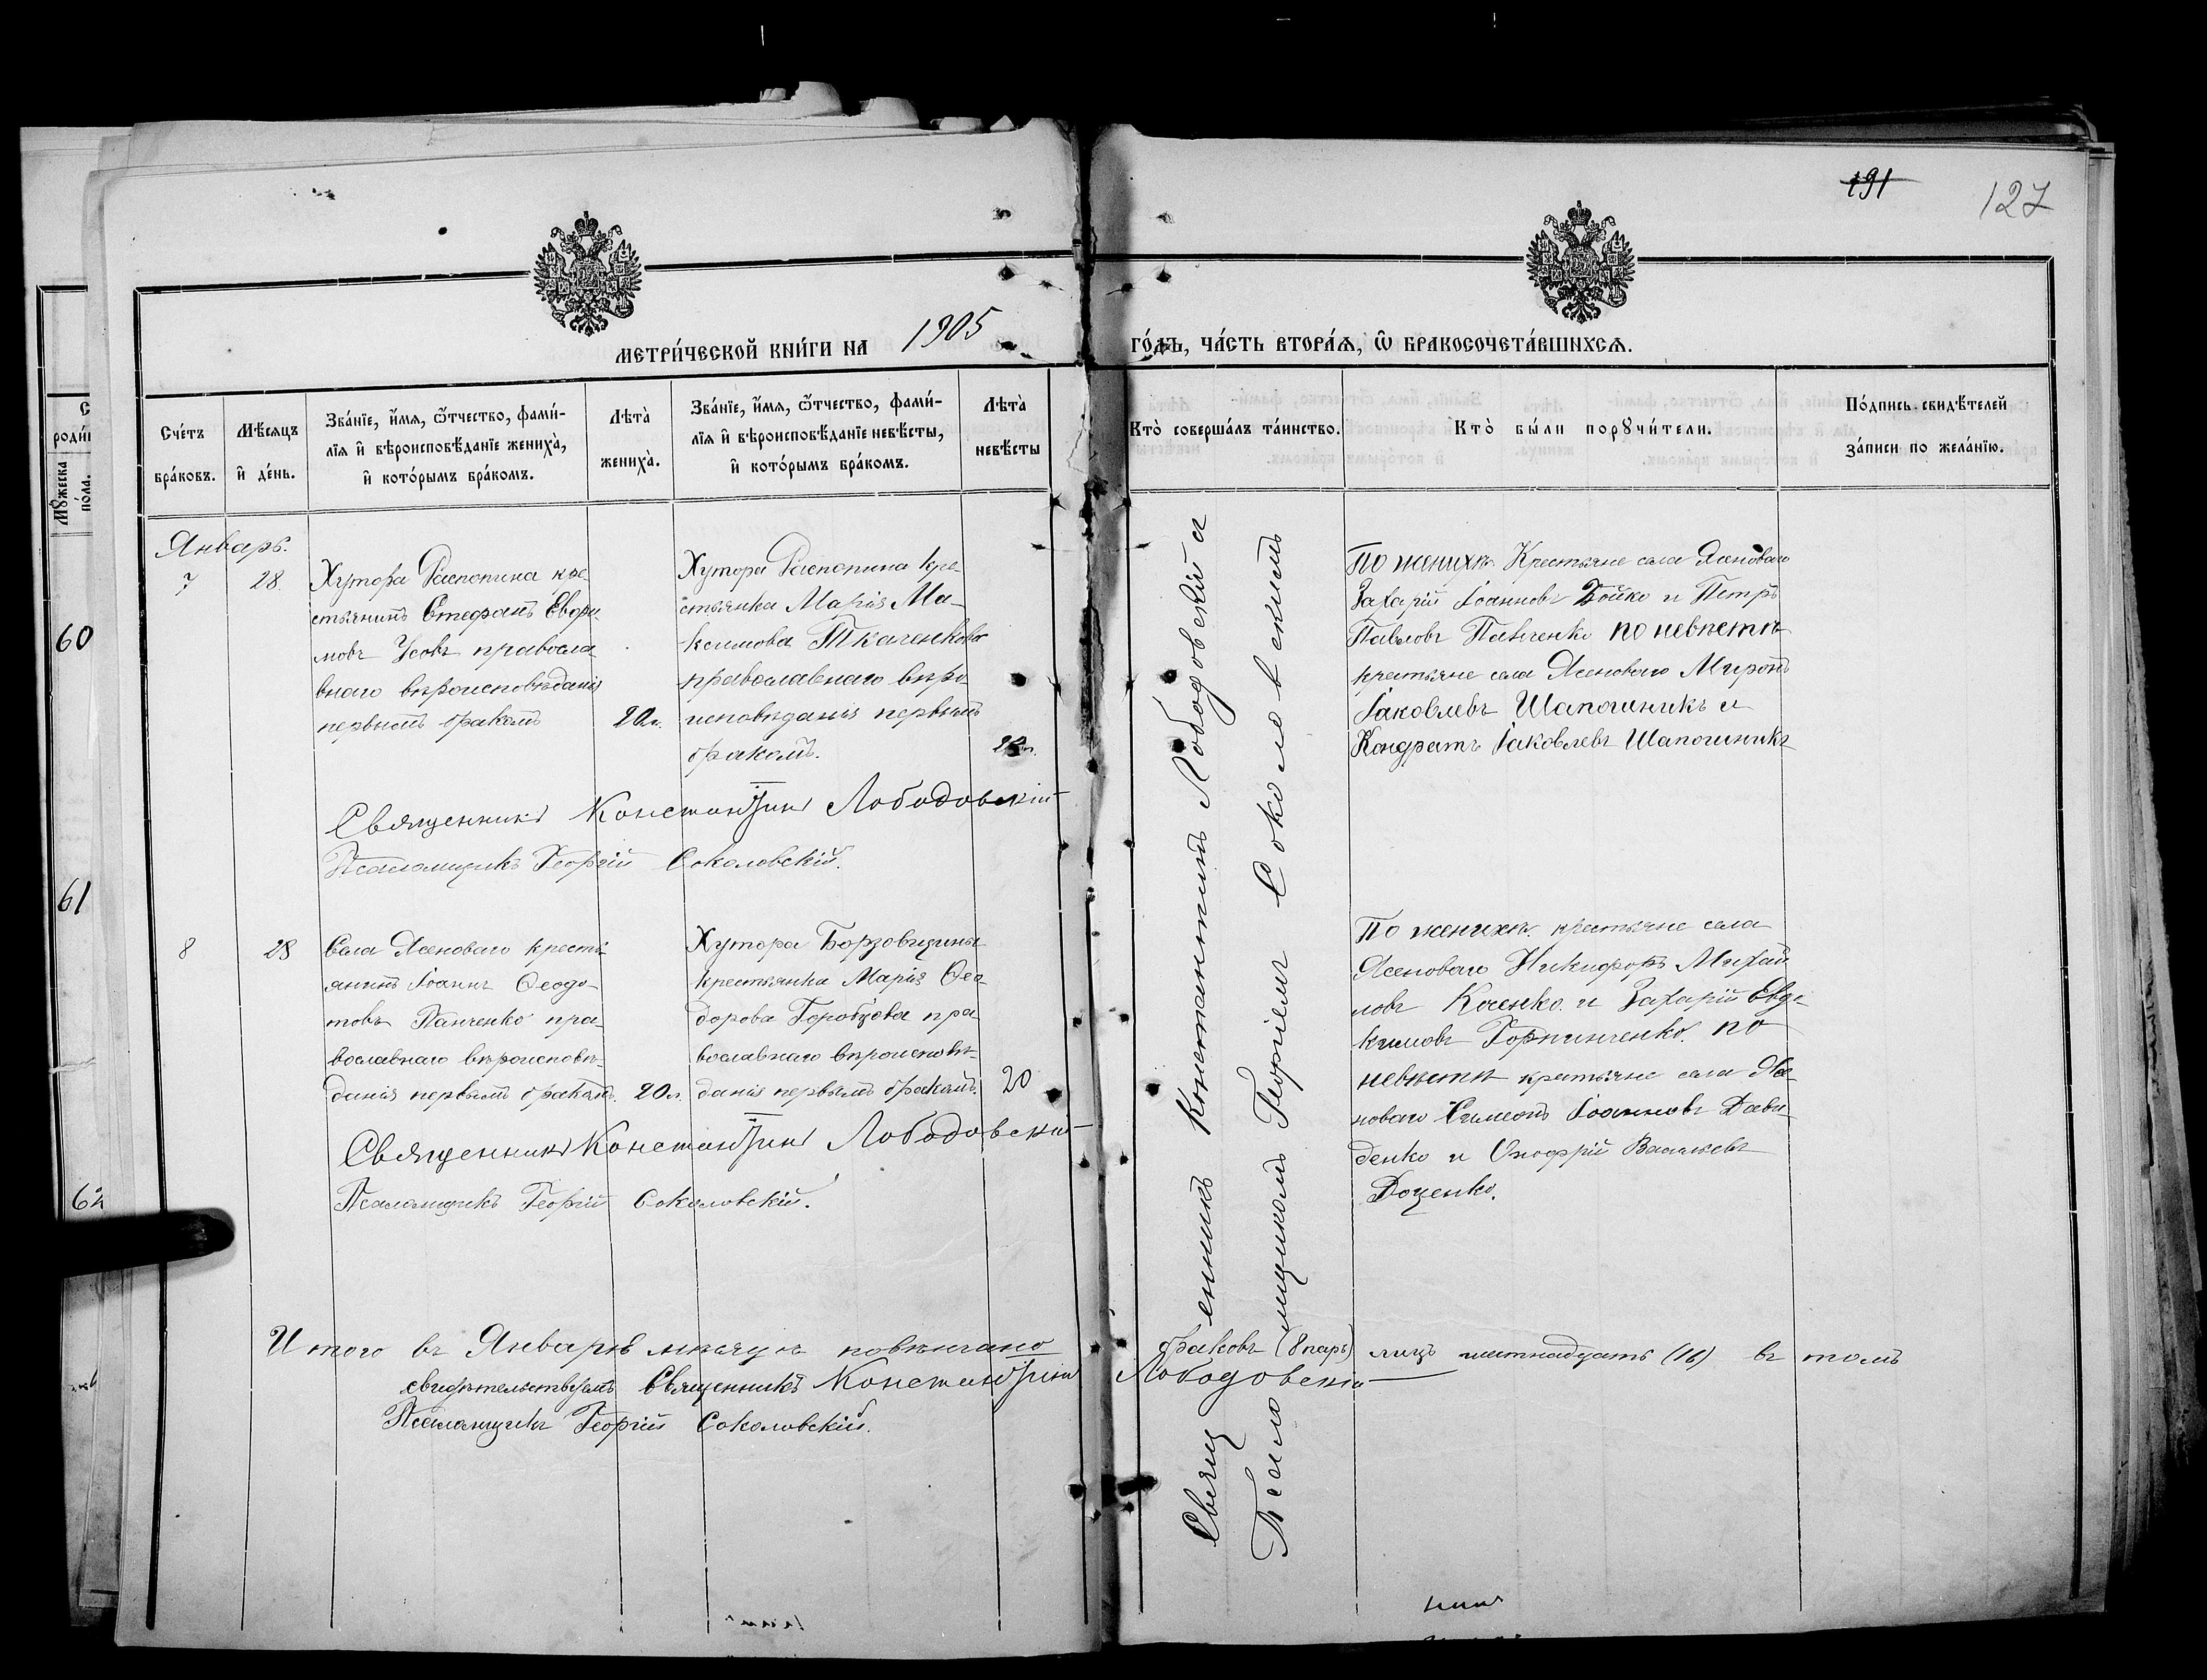 191
127
МЕТРИ́ЧЕСКОЙ КНИ́ГИ НА 1905
ГО́ДЪ, ЧА́СТЬ ВТОРА́Ѧ, Ѽ БРАКОСОЧЕТА́ВШИХСѦ.
Сче́тъ бра́ковъ.
Мѣ́сѧцъ и҆ де́нь.
Зва́нїе, и҆́мѧ, ѻ҆́тчество, фами́-
лїѧ и҆ вѣроисповѣ́данїе жениха̀,
и҆ кото́рымъ бра́комъ.
Лѣта̀
жениха̀.
Зва́нїе, и҆́мѧ, ѻ҆́тчество, фами́-
лїѧ и҆ вѣроисповѣ́данїе невѣ́сты,
и҆ кото́рымъ бра́комъ.
Лѣта̀
невѣ́сты
Кто̀ соверша́лъ та́инство.
Кто̀ бы́ли порꙋчи́тели.
По́дпись свидѣ́телей
за́писи по жела́нїю.
Январь.
7
28.
Хутора Распопина кре-
стьянинъ Стефанъ Евфи-
мовъ Усовъ правосла
внаго вѣроисповѣданія
первымъ бракомъ
20л.
Хутора Распопина кре-
стьянка Марія Ма-
ксимова Ткаченкова
православнаго вѣро
исповѣданія первымъ
бракомъ.
Священникъ Константинъ Лободовскій
Псаломщикъ Георгій Соколовскій.
По женихѣ Крестьяне села Ясеноваго
Захарій Іоанновъ Бойко и Петръ
Павловъ Панченко по невѣстѣ
крестьяне села Ясеноваго Миронъ
Іаковлевъ Шапошникъ и
Кондратъ Іаковлевъ Шапошникъ
8
28
Села Ясеноваго кресть
янинъ Іоаннъ Ѳеодо-
товъ Панченко пра-
вославнаго вѣроисповѣ-
данія первымъ бракомъ.
20л.
Хутора Борзовщины
крестьянка Марія Ѳео-
дорова Горобцова пра-
вославнаго вѣроисповѣ-
данія первымъ бракомъ.
20
Священникъ Константинъ Лободовскій
Псаломщикъ Георгій Соколовскій.
По женихѣ. крестьяне села
Ясеноваго Никифоръ Михай
ловъ Косенко и Захарій Евдо-
кимовъ Горпинченко. по
невѣстѣ крестьяне села Ясе-
новаго Симеонъ Іоанновъ Дави-
денко и Онофрій Васильевъ
Доценко.
Священникъ Константинъ Лободовскій и
Псаломщикомъ Георгіемъ Соколовскимъ
Итого въ Январѣ мѣсяцѣ повѣнчано браковъ (8 паръ) лицъ шестнадцать (16) въ томъ
свидѣтельствуемъ Священникъ Константинъ Лободовскій
Псаломщикъ Георгій Соколовскій.
60
61
62